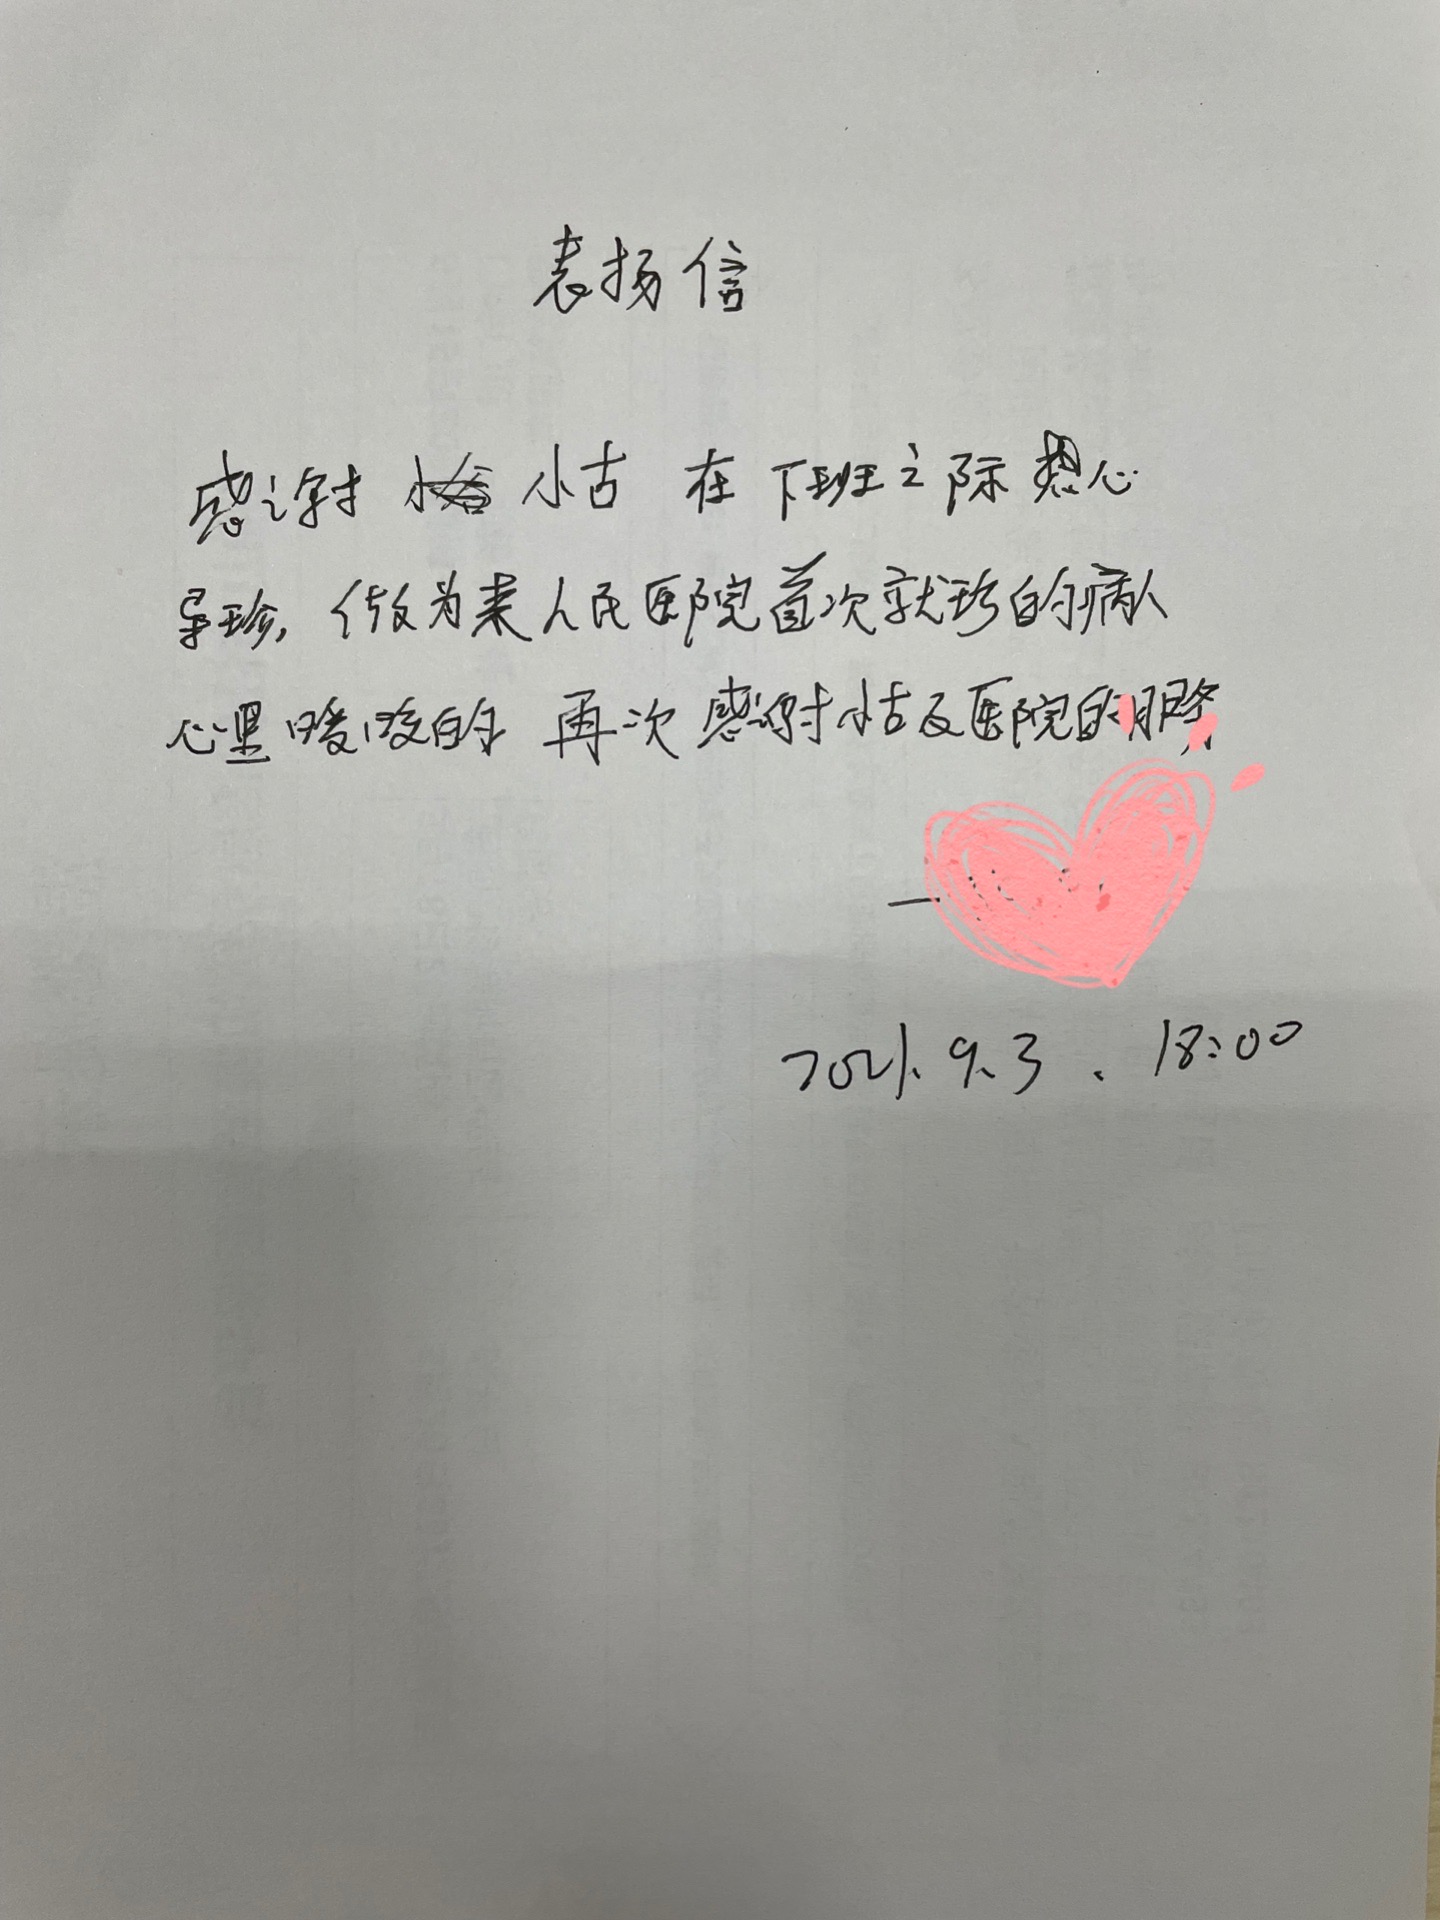 表扬信
感谢 小古 在下班之际热心
导珍，做为来人民医院首次就珍的病人
心里暖暖的 再次感谢小古及医院的服务
2021.9.3. 18:00